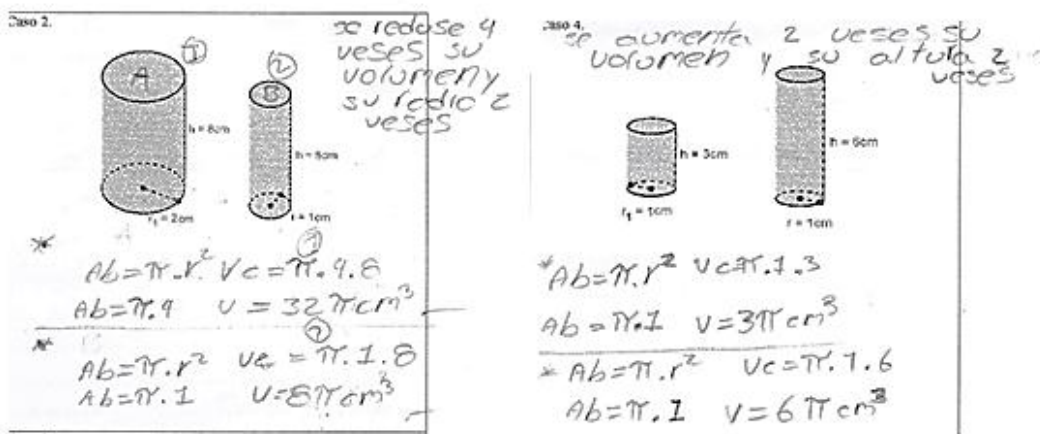 Caso 2.
se reduse 4
veses su
volumen y
su redio 2
veses
1
2
A
B
h = 8cm
h = 8cm
r₁ = 2cm
r = 1cm
1
* Ab=π.r² Vc=π.4.8
Ab=π.4 V=32πcm³
2
* Ab=π.r² Vc=π.1.8
Ab=π.1 V=8πcm³
Caso 4.
se aumenta 2 veses su
volumen y su altura 2
veses
h = 3cm
h = 6cm
r₁ = 1cm
r = 1cm
* Ab=π.r² Vc=π.1.3
Ab=π.1 V=3πcm³
* Ab=π.r² Vc=π.1.6
Ab=π.1 V=6πcm³